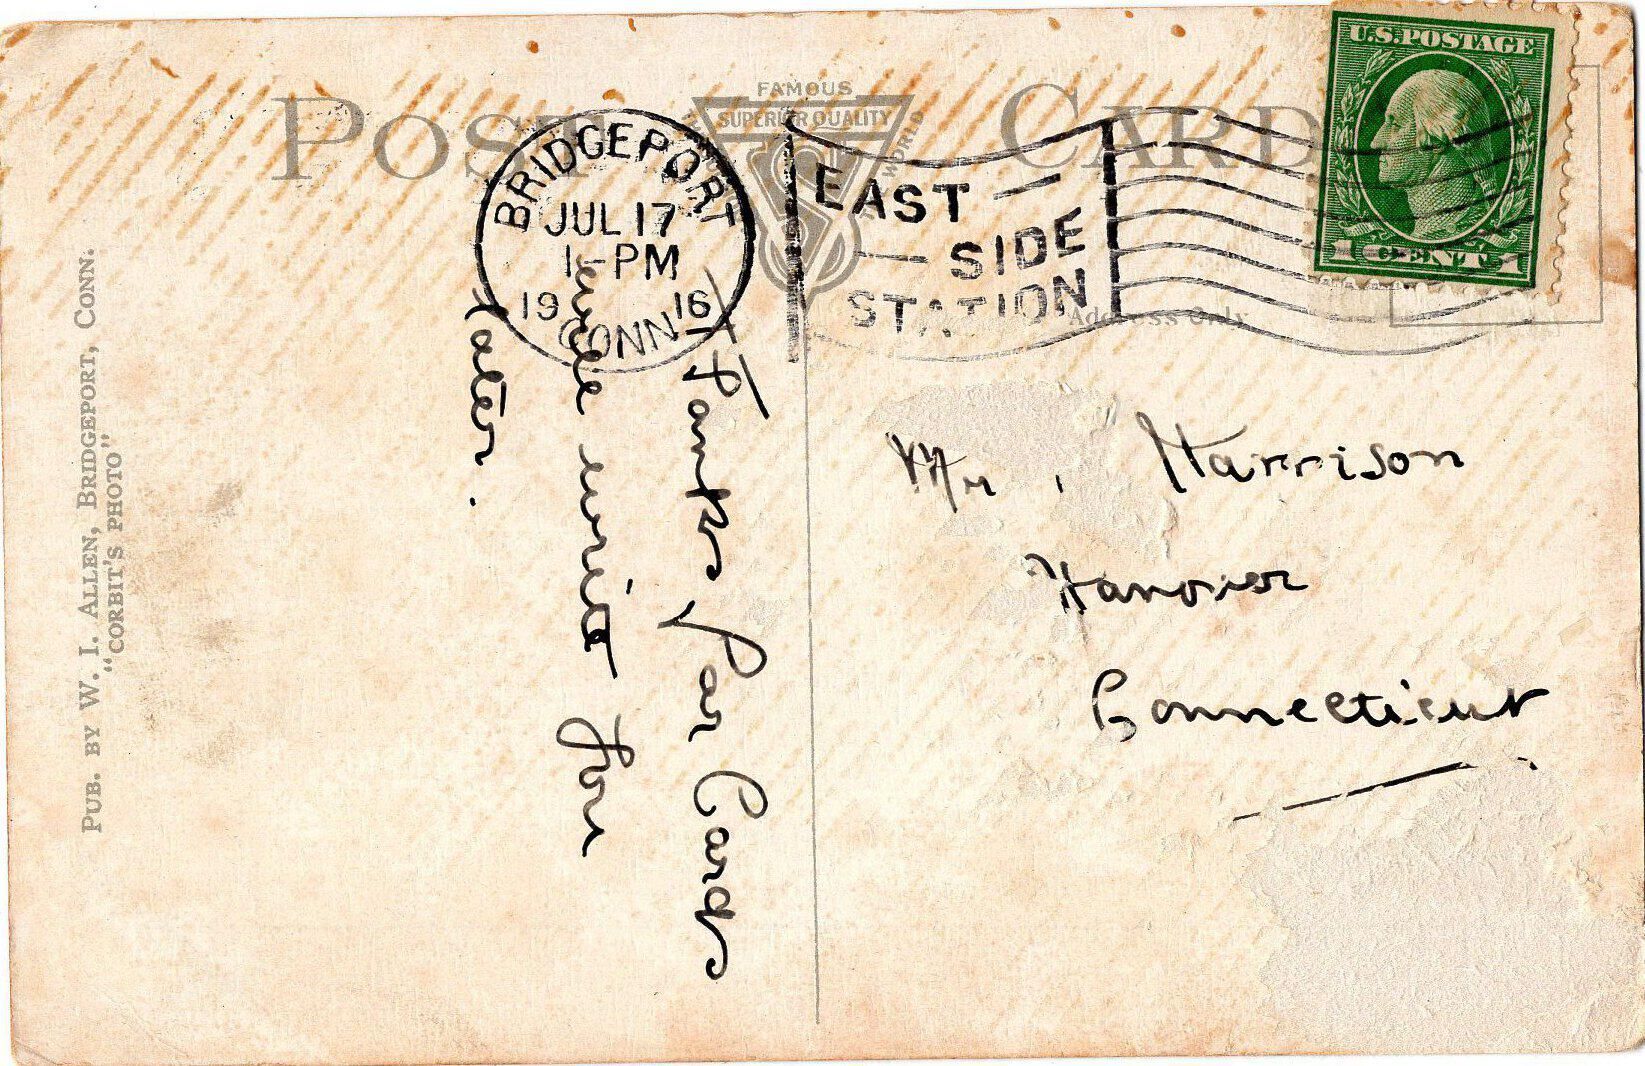 POST CARD
FAMOUS
SUPERIOR QUALITY
WORLD
U.S. POSTAGE
1 CENT 1
BRIDGEPORT
JUL 17
1-PM
1916
CONN
EAST
SIDE
STATION
Address Only
PUB. BY W. I. ALLEN, BRIDGEPORT, CONN.
"CORBIT'S PHOTO"
Thanks for Cards
write you
later.
Mr, Harrison
Hanover
Connecticut